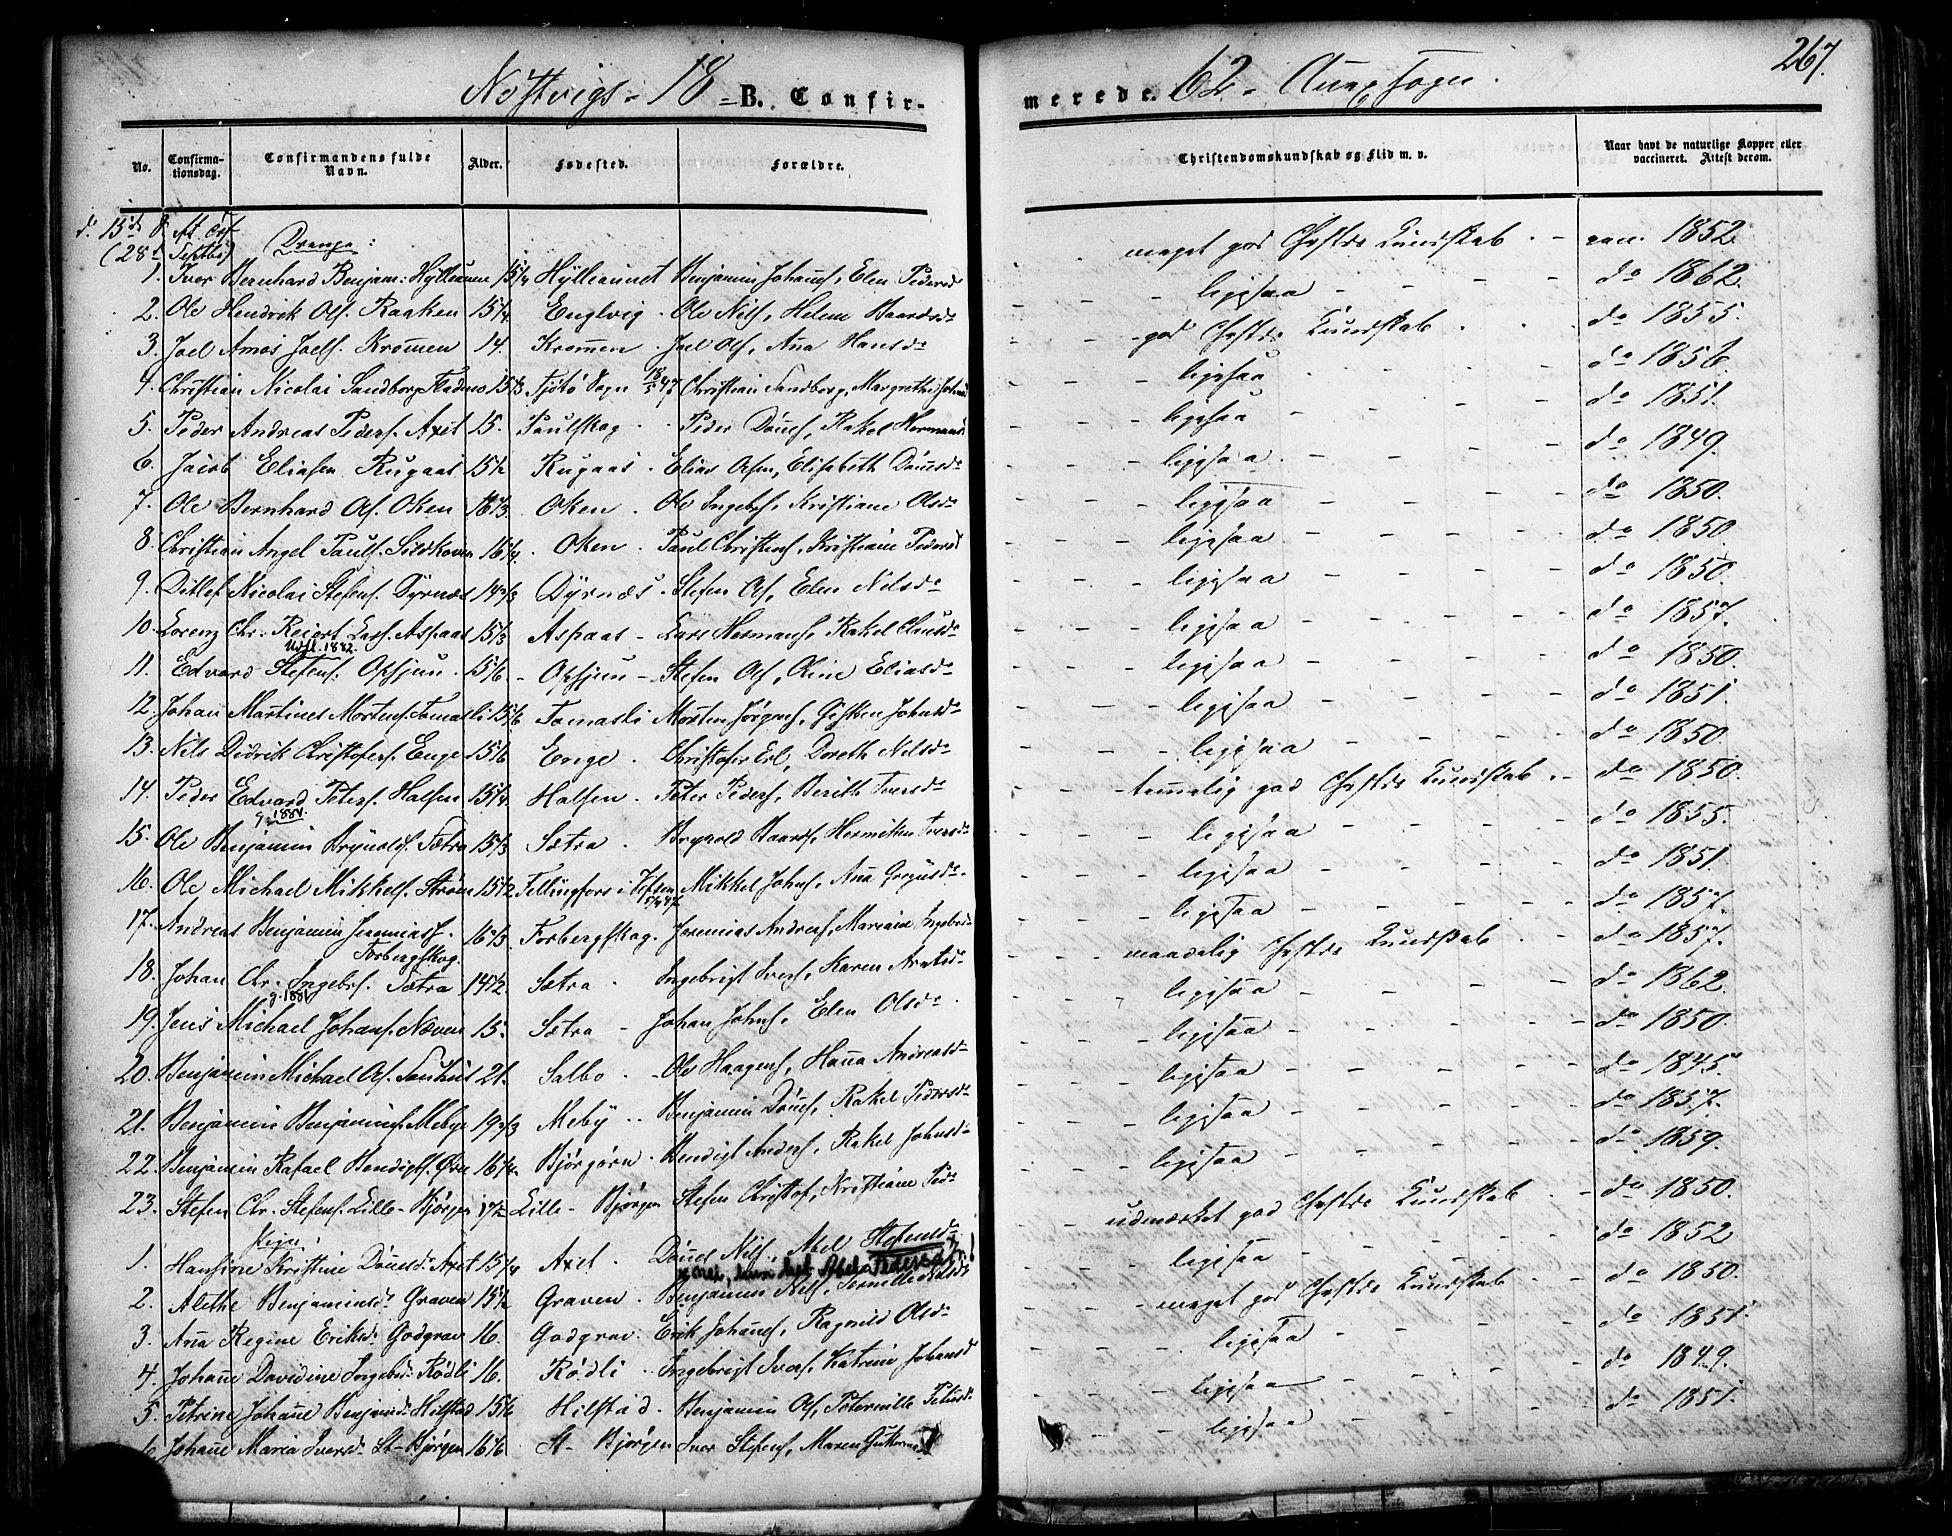 Nöstvigs - 18 - B. Confir-
merede. 62 - Annexsogn.
267.
No.
Confirma-
tionsdag.
Confirmandens fulde
Navn.
Alder.
Fødested.
Forældre.
Christendomskundskab og Flid m. v.
Naar havt de naturlige Kopper eller
vaccineret. Attest derom.
d. 15de
(28 Septbr)
Drenge:
1. Iver Bernhard Benjam: Hylleunne 15 1/4 Hylleunnet Benjamin Johans, Elen Pedersd meget god Chrstds Kundskab - vacc. 1852.
2. Ole Hendrik Ols. Raaken 15 1/4 Englvig - Ole Nils, Helene Baardsd ligesaa do 1862.
3. Joel Amos Joels. Kromen 14. Kromen - Joel Ols, Ana Hansd god Chrstds Kundskab do 1855.
4. Christian Nicolai Sandberg 15 1/3 Tjøtø Sogn 18/5 47 Christian Sandberg, Margrethe ligesaa do 1856.
5. Peder Andreas Peders. Axet 15. Paulskog - Peder Dons, Rakel Hermans ligesaa do 1851.
6. Jacob Eliasen Rugaas 15 1/2 Rugaas - Elias Olsen, Elisabeth ligesaa do 1849.
7. Ole Bernhard Ols. Oken 16 1/3. Oken - Ole Ingebr, Kristiane Olsd ligesaa do 1850.
8. Christian Angel Pauls. 16 1/4 - Oken - Paul Christens, Kristiane Pedersd ligesaa do 1850.
9. Ditlef Nicolai Stefens. Dyrnæs 14 2/3 Dyrnæs - Stefen Ols, Elen Nilsd ligesaa do 1850.
10. Lorenz Chr. Lars. Aspaas 15 1/3 Aspaas - Lars Hermans, Rakel Clausd ligesaa do 1857.
Udfl. 1882.
11. Edvard Stefens. Opsjøn - 15 1/6 - Opsjøn - Stefen Ols, Oline Eliasd ligesaa do 1850.
12. Johan Martines Mortens. Tomasli 15 1/6 Tomasli Morten Jørgens, Gisken Johnsd ligesaa do 1851.
13. Nils Didrik Christofers. Enge 15 1/6 Enge - Christofer Erl, Doreth Nilsd ligesaa do 1850.
14. Peder Edvard Peters. Halsen 15 1/4 Halsen - Peter Peders, Berith Iversd temmelig god Chrstds Kundskab do 1850.
g. 1884.
15. Ole Benjamin Brynolds. Sætra 15 1/3 Sætra - Brynold Baards, Iversd ligesaa do 1855.
16. Ole Michael Mikkels. Strøm 15 1/2. Mikkel Johns, Ana Gregusd ligesaa do 1851.
17. Andreas Benjamin Jeremias. 16 2/3 Forbergskog. Jeremias Anders, Mariane Ingebrd ligesaa do 1857.
Forbergskog.
18. Johan Chr. Ingebr. Sætra 14 1/2. Sætra - Ingebrigt Ivers, Karen Arntsd maadelig Chrstds Kundskab do 1857.
g. 1881
19. Jens Michael Johans. Næven 15. Sætra - Johan Johns, Elen Olsd ligesaa do 1862.
20. Benjamin Michael Ols. 21. Salbo - Ole Haagens, Hana Andreasd ligesaa do 1850.
21. Benjamin Benjamins. Meby 19 2/3 Meby - Benjamin Dons, Rakel Pedersd ligesaa do 1845.
22. Benjamin Rafael Bendigts. 16 1/4. Bjørgørn - Bendigt Anders, Rakel Johnsd ligesaa do 1857.
23. Stefen Chr. Stefens. Lille-Bjørgen 17 1/2 Lille-Bjørgen Stefen Christof, Kristiane Ped ligesaa do 1859.
Piger:
1. Hansine Kristine Axet 15 1/4 Axet - Nils, Abel Stefensd udmærket god Chrstds Kundskab - do 1850.
nei, hun het Abel Pedersd.!
2. Alethe Benjaminsd Graven 15 1/2 Graven - Benjamin Nils, Pernille ligesaa do 1852
3. Ana Regine Eriksd Godgrav 16. Godgrav - Erik Johans, Ragnild Olsd meget god Chrstds Kundskab do 1850.
4. Johane Davidine Ingebr. Rødli 16. Rødli - Ingebrigt Ivers, Katrine Johansd ligesaa do 1851.
5. Petrine Johane Benjamd Hilstad 15 1/6 Hilstad - Benjamin Ols, Petersd ligesaa do 1849.
6. Johane Maria Iversd St-Bjørgen 16 1/6 St-Bjørgen Iver Stefens, Maren ligesaa do 1851.